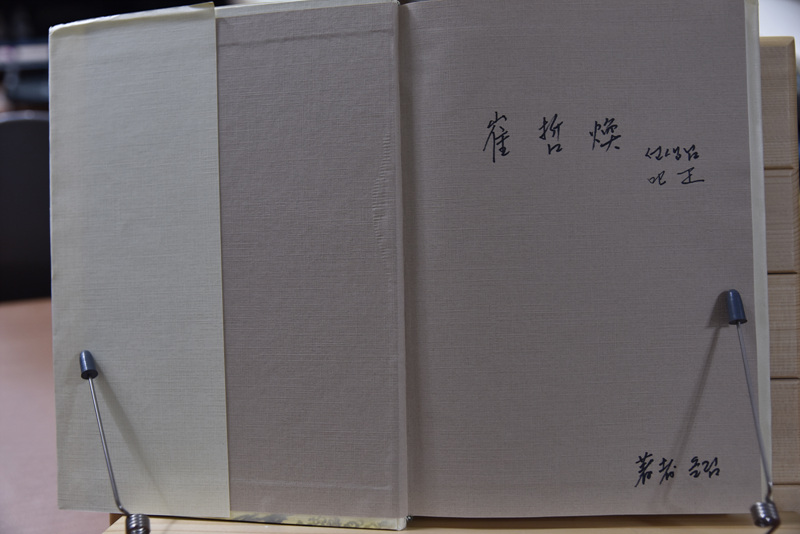 崔哲煥
선생님
叱正
著者 올림